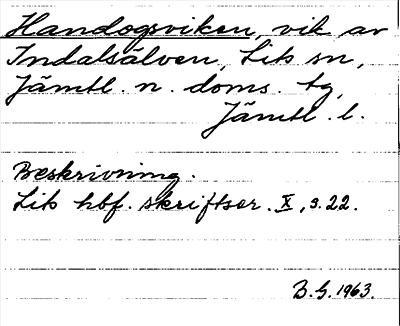 Handogsviken, vik av
Indalsälven, Lits sn,
Jämtl. n. doms. tg,
Jämtl. l.
Beskrivning.
Lits hbf. skriftser. X, s. 22.
B.G. 1963.